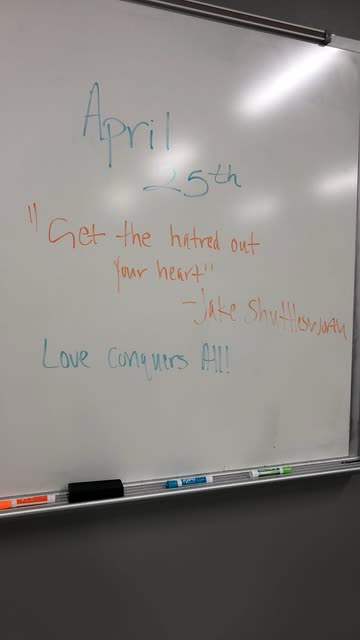 April
25th
"Get the hatred out
your heart"
-Jake Shuttlesworth
Love Conquers All!
EXPO